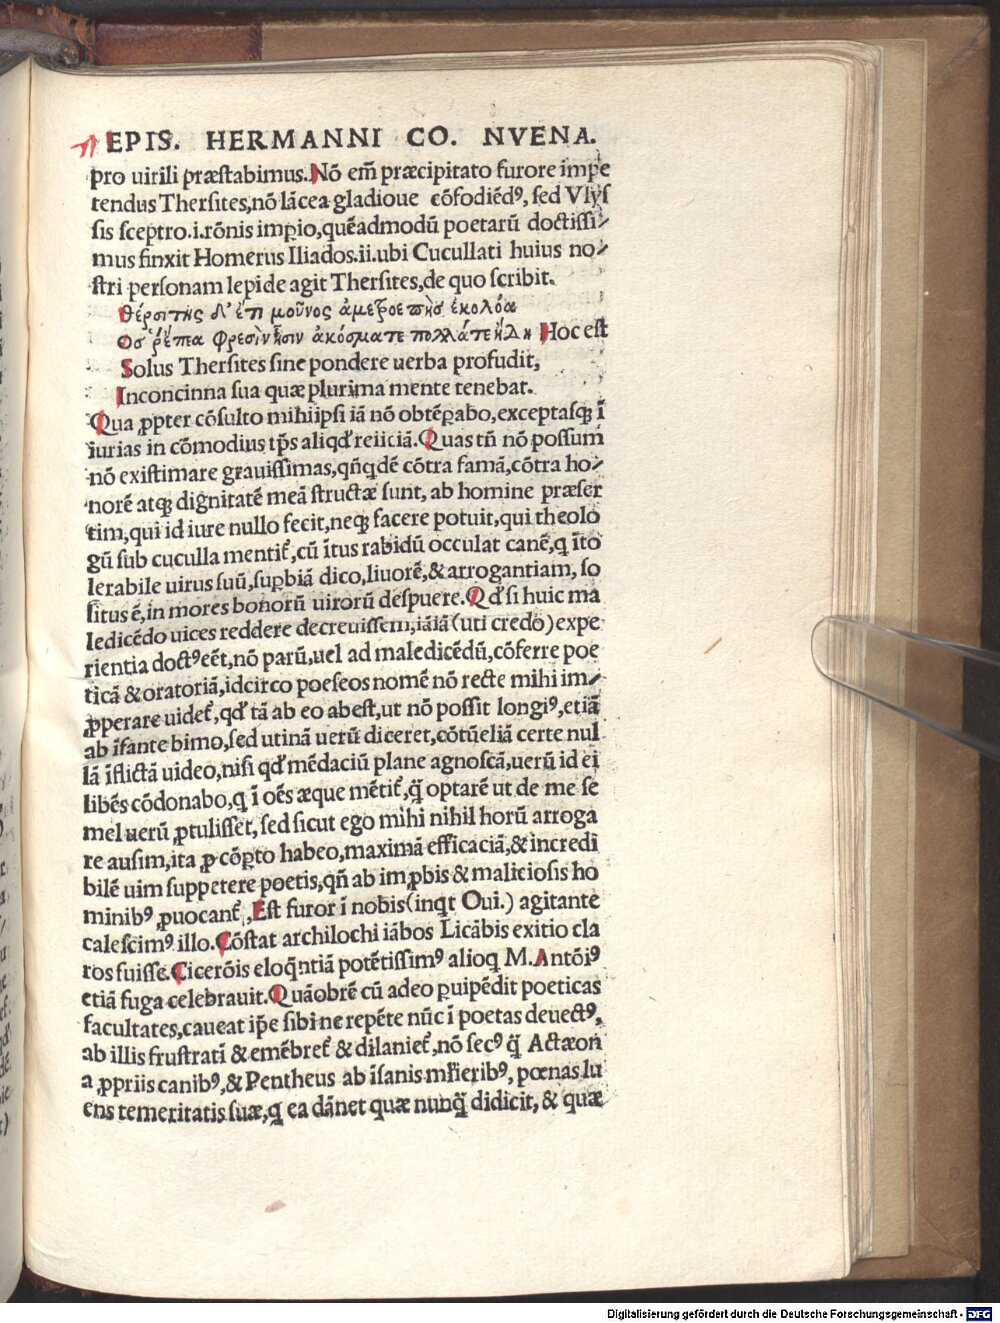 EPIS. HERMANNI CO. NVENA.
pro uirili præstabimus. Nō em̄ præcipitato furore impe
tendus Thersites, nō lācea gladioue cōfodiēdꝰ, sed Vlyſ
sis sceptro .i. rōnis impio, quēadmodū poetarū doctissi⸗
mus finxit Homerus Iliados .ii. ubi Cucullati huius no⸗
stri personam lepide agit Thersites, de quo scribit.
θέρσιτης δ' ἔτι μοῦνος ἀμετροεπὴσ ἐκολώα
Οσ ῥ' ἔπεα φρεσὶν ἧσιν ἀκόσματε πολλάτε ἤδη Hoc est
Solus Thersites sine pondere uerba profudit,
Inconcinna sua quæ plurima mente tenebat.
Qua ꝓpter cōsulto mihiipsi iā nō obtēꝑabo, exceptasqꝫ ī
iurias in cōmodius tp̄s aliqd' reiiciā. Quas tn̄ nō possum
nō existimare grauissimas, qn̄qdē cōtra famā, cōtra ho⸗
norē atqꝫ dignitatē meā structæ sunt, ab homine præser
tim, qui id iure nullo fecit, neqꝫ facere potuit, qui theolo
gū sub cuculla mentit̄, cū ītus rabidū occulat canē, q īto
lerabile uirus suū, suꝑbiā dico, liuorē, & arrogantiam, so
situs ē, in mores bonorū uirorū despuere. Qd' si huic ma
ledicēdo uices reddere decreuissem, iāiā (uti credo) expe
rientia doctꝰ eēt, nō parū, uel ad maledicēdū, cōferre poe
ticā & oratoriā, idcirco poeseos nomē nō recte mihi im⸗
ꝓperare uidet̄, qd' tā ab eo abest, ut nō possit longiꝰ, etiā
ab īfante bimo, sed utinā uerū diceret, cōtūeliā certe nul
lā īflictā uideo, nisi qd' mēdaciū plane agnoscā, uerū id ei
libēs cōdonabo, q ī oēs æque mētit̄, q̄ optarē ut de me se
mel uerū ꝓtulisset, sed sicut ego mihi nihil horū arroga
re ausim, ita ꝓ cōꝑto habeo, maximā efficaciā, & incredi
bilē uim suppetere poetis, qn̄ ab imꝓbis & maliciosis ho
minibꝰ ꝓuocant̄, Est furor ī nobis (inqt Oui.) agitante
calescimꝰ illo. Cōstat archilochi iābos Licābis exitio cla
ros fuisse. Cicerōis eloq̄ntiā potētissimꝰ alioq M. Antōiꝰ
etiā fuga celebrauit. Quāobrē cū adeo ꝑuipēdit poeticas
facultates, caueat ip̄e sibi ne repēte nūc ī poetas deuectꝰ,
ab illis frustratī & emēbret̄ & dilaniet̄, nō secꝰ q̄ Actæon
a ꝓpriis canibꝰ, & Pentheus ab īsanis mr̄ieribꝰ, pœnas lu
ens temeritatis suæ, q ea dānet quæ nunq̄ didicit, & quæ
Digitalisierung gefördert durch die Deutsche Forschungsgemeinschaft - DFG